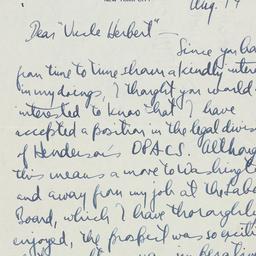 NEW YORK CITY
Aug. 19
Dear "Uncle Herbert" —
Since you ha
from time to time shown a kindly inter
in my doings, I thought you would
interested to know that I have
accepted a position in the legal divis
of Henderson's OPACS. Althoug
this means a move to Washingt
and away from my job at the Labo
Board, which I have thoroughl
enjoyed, the prospect was so exciti